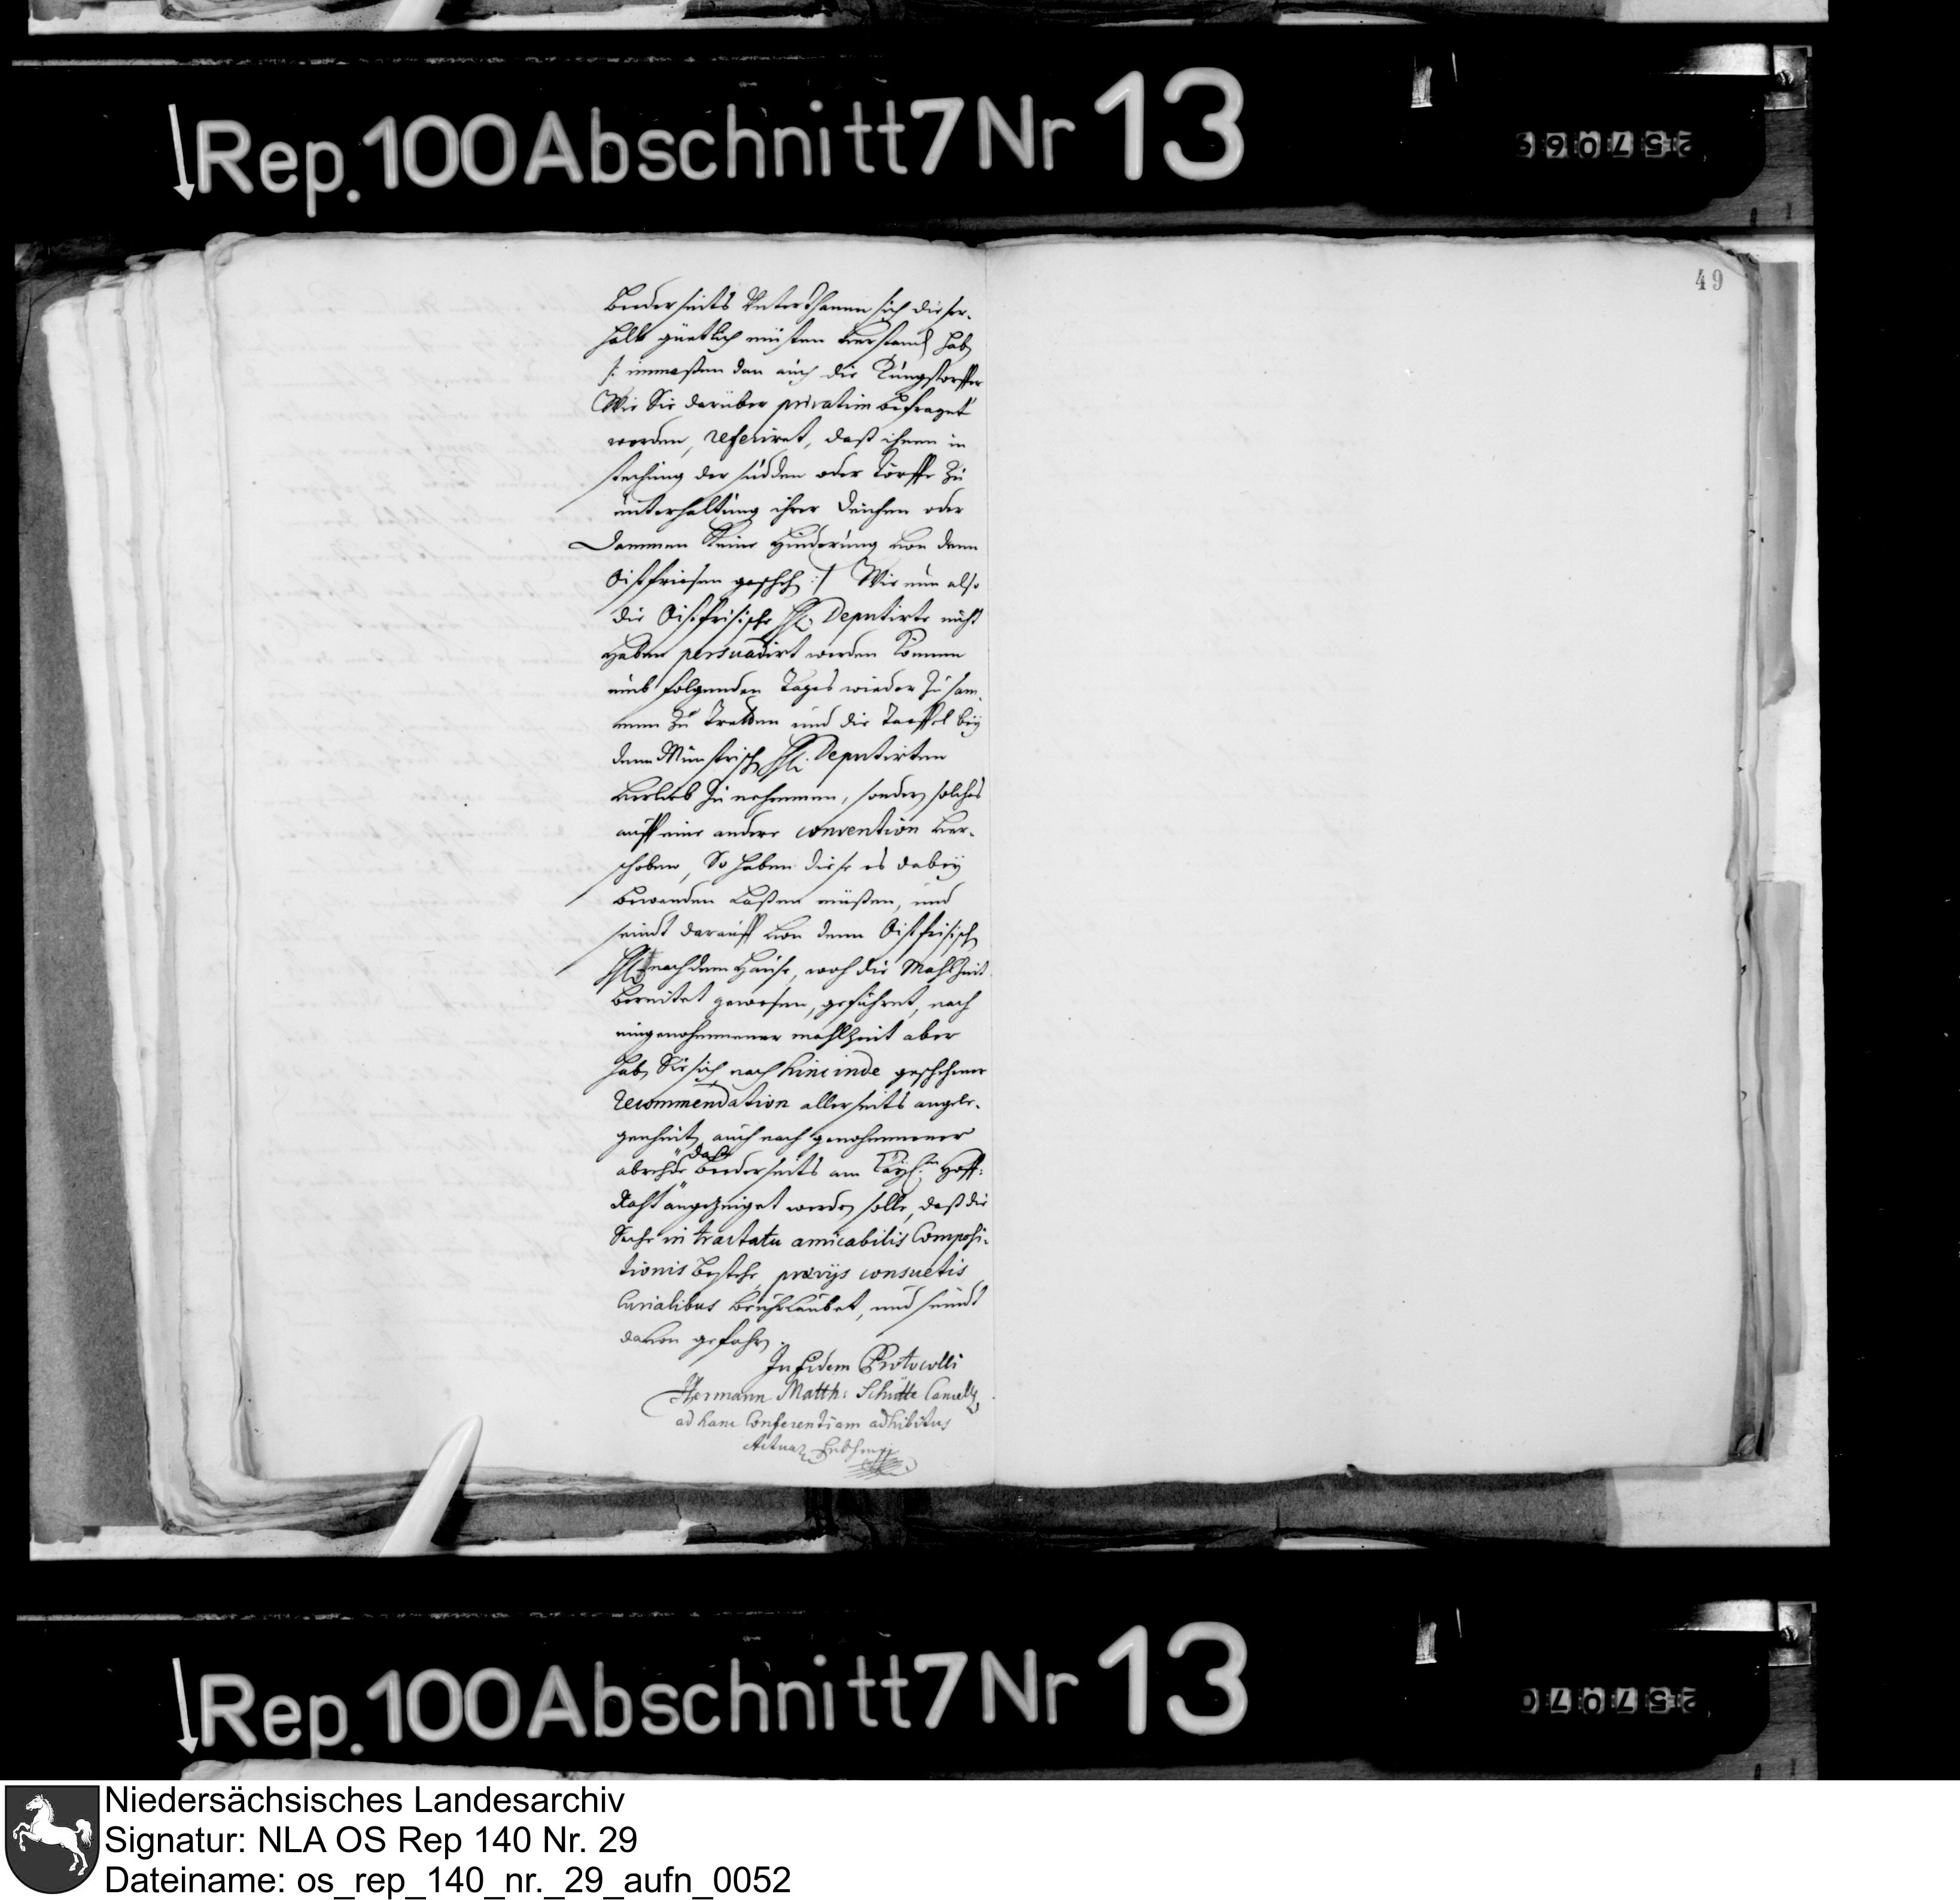 Rep. 100 Abschnitt 7 Nr 13
49
Beederseits Unterthanen sich dieser-
halb güetlich müsten verstand hab
/: immaßen dan auch die
Wie Sie darüber privatim befraget
worden, referiret, daß ihnen in
stechung der südden oder Törffe zu
unterhaltung ihrer Deichen oder
Dammen keine Hinderung von denn
Oistfriesen gescheh :/ Wie nun also
die Oistfrisische HH. Deputirte nicht
haben persuadirt werden können
umb folgenden Tages wieder zu sam-
men zu Tretten und die Taeffel bey
denn Münstrisch HH. Deputirten
verlieb zu nehmmen, sondern solches
auff eine andere convention ver-
schoben, So haben diese es dabey
bewenden laßen müßen, und
seindt darauff von denn Oistfrisisch
HH. nach dem Hause, woh die Mahlzeit
bereitet gewesen, geführet, nach
eingenohmmener mahlzeit aber
hab Sie sich nach hinc inde geschehener
recommendation allerseits angele-
genheit, auch nach genohmmener
abrehde daß Beederseits am Kayß.en Hoff-
Raht angezeiget werden solle, daß die
Sache in tractatu amicabilis Composi-
tionis Bestehe, praevijs consuetis
Curialibus beuhrlaubet, und seindt
davon gefahren.
In fidem Protocolli
Hermann Matth: Schütte
ad hanc Conferentiam adhibitus
Rep. 100 Abschnitt 7 Nr 13
Niedersächsisches Landesarchiv
Signatur: NLA OS Rep 140 Nr. 29
Dateiname: os_rep_140_nr._29_aufn_0052